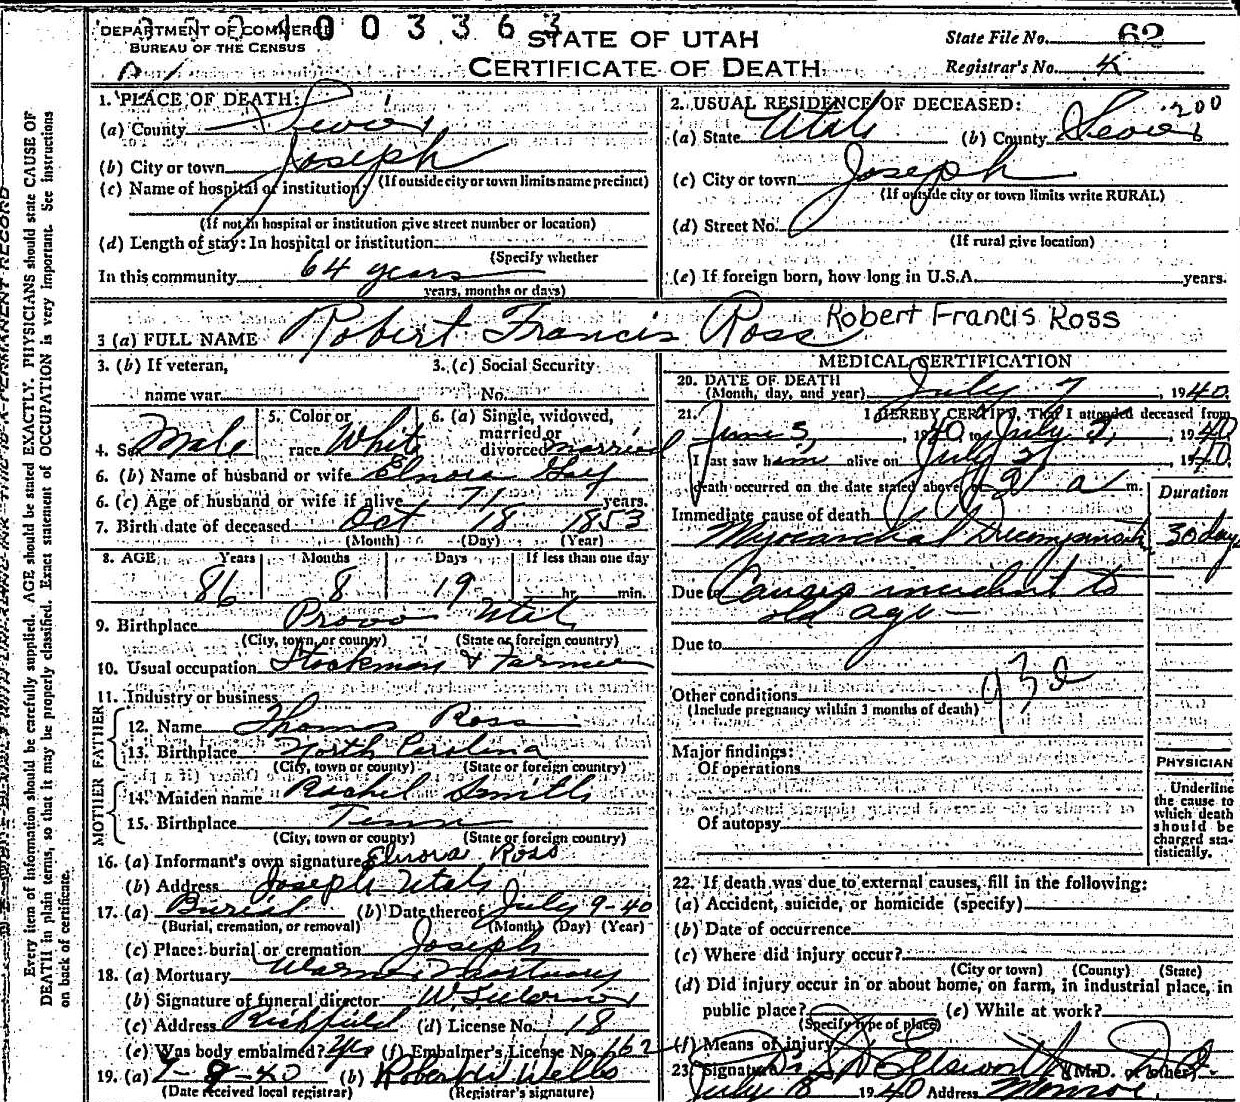 DEPARTMENT OF COMMERCE
BUREAU OF THE CENSUS
1003363
STATE OF UTAH
CERTIFICATE OF DEATH
State File No. 62
Registrar's No. 4
1. PLACE OF DEATH:
(a) County Sevier
(b) City or town Joseph
(If outside city or town limits name precinct)
(c) Name of hospital or institution:
(If not in hospital or institution give street number or location)
(d) Length of stay: In hospital or institution
(Specify whether
In this community 64 years
years, months or days)
2. USUAL RESIDENCE OF DECEASED:
200
(a) State Utah (b) County Sevier
(c) City or town Joseph
(If outside city or town limits write RURAL)
(d) Street No.
(If rural give location)
(e) If foreign born, how long in U.S.A. years.
3 (a) FULL NAME Robert Francis Ross Robert Francis Ross
3. (b) If veteran, 3. (c) Social Security
name war No.
4. Sex Male 5. Color or race White 6. (a) Single, widowed, married or divorced married
6. (b) Name of husband or wife Elnora Gay
6. (c) Age of husband or wife if alive 71 years.
7. Birth date of deceased Oct 18 1853
(Month) (Day) (Year)
8. AGE Years Months Days If less than one day
86 8 19 hr. min.
9. Birthplace Provo Utah
(City, town, or county) (State or foreign country)
10. Usual occupation Stockman & Farmer
11. Industry or business
FATHER
12. Name Thomas Ross
13. Birthplace North Carolina
(City, town or county) (State or foreign country)
MOTHER
14. Maiden name Rachel Smith
15. Birthplace Tenn
(City, town or county) (State or foreign country)
16. (a) Informant's own signature Elnora Ross
(b) Address Joseph Utah
17. (a) Burial (b) Date thereof July 9-40
(Burial, cremation, or removal) (Month) (Day) (Year)
(c) Place: burial or cremation Joseph
18. (a) Mortuary Mortuary
(b) Signature of funeral director
(c) Address Richfield (d) License No. 18
(e) Was body embalmed? Yes (f) Embalmer's License No. 162
19. (a) 7-9-40 (b) Wells
(Date received local registrar) (Registrar's signature)
MEDICAL CERTIFICATION
20. DATE OF DEATH July 7, 1940
(Month, day, and year)
21. I HEREBY CERTIFY, That I attended deceased from
June 5, 1940 to July 7, 1940
I last saw him alive on July 1940
death occurred on the date stated above at 2 a m.
Duration
Immediate cause of death
Myocardial Decompensation 30 days
Due to Causes incident to
old age
Due to
Other conditions 93d
(Include pregnancy within 3 months of death)
Major findings:
Of operations
Of autopsy
PHYSICIAN
Underline
the cause to
which death
should be
charged sta-
tistically.
22. If death was due to external causes, fill in the following:
(a) Accident, suicide, or homicide (specify)
(b) Date of occurrence
(c) Where did injury occur?
(City or town) (County) (State)
(d) Did injury occur in or about home, on farm, in industrial place, in
public place? (e) While at work?
(Specify type of place)
(f) Means of injury
23. Signature Ellsworth (M.D. or other)
July 8 1940 Address Monroe
Every item of information should be carefully supplied. AGE should be stated EXACTLY. PHYSICIANS should state CAUSE OF
DEATH in plain terms, so that it may be properly classified. Exact statement of OCCUPATION is very important. See instructions
on back of certificate.